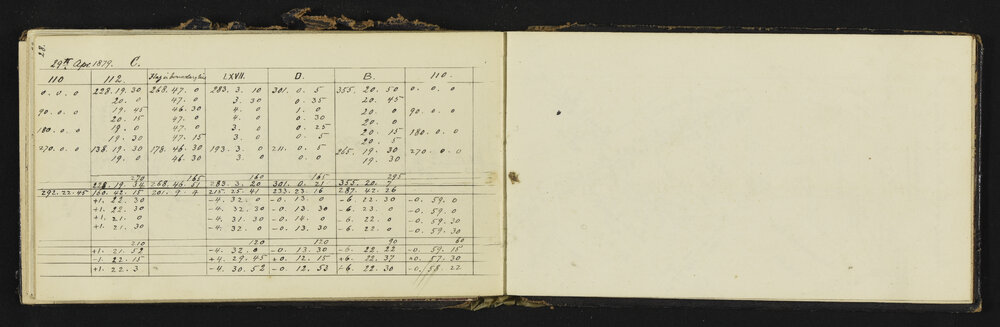 28.
29th Apr 1879. C.
110 112. LXVII. D. B. 110.
0. 0. 0 228. 19. 30 268. 47. 0 283. 3. 10 301. 0. 5 355. 20. 50 0. 0. 0
20. 0 47. 0 3. 30 0. 35 20. 45
90. 0. 0 19. 45 46. 30 4. 0 1. 0 20. 0 90. 0. 0
20. 15 47. 0 4. 0 0. 30 20. 0
180. 0. 0 19. 0 47. 0 3. 0 0. 25 20. 15 180. 0. 0
19. 30 47. 15 3. 0 0. 5 20. 5
270. 0. 0 138. 19. 30 178. 46. 30 193. 3. 0 211. 0. 5 265. 19. 30 270. 0. 0
19. 0 46. 30 3. 0 0. 0 19. 30
270 165 160 165 295
228. 19. 34 268. 46. 51 283. 3. 20 301. 0. 21 355. 20. 7
292. 22. 45 160. 42. 15 201. 9. 9 215. 25. 41 233. 23. 16 287. 42. 26
+1. 22. 30 -4. 32. 0 -0. 13. 0 -6. 22. 30 -0. 59. 0
+1. 22. 30 -4. 32. 30 -0. 13. 30 -6. 23. 0 -0. 59. 0
+1. 21. 0 -4. 31. 30 -0. 14. 0 -6. 22. 0 -0. 59. 30
+1. 21. 30 -4. 32. 0 -0. 13. 30 -6. 22. 0 -0. 59. 30
210 120 120 90 60
+1. 21. 52 -4. 32. 0 -0. 13. 30 -6. 22. 22 -0. 59. 15
-1. 22. 15 +4. 29. 45 +0. 12. 15 +6. 22. 37 +0. 57. 30
+1. 22. 3 -4. 30. 52 -0. 12. 53 -6. 22. 30 -0. 58. 22